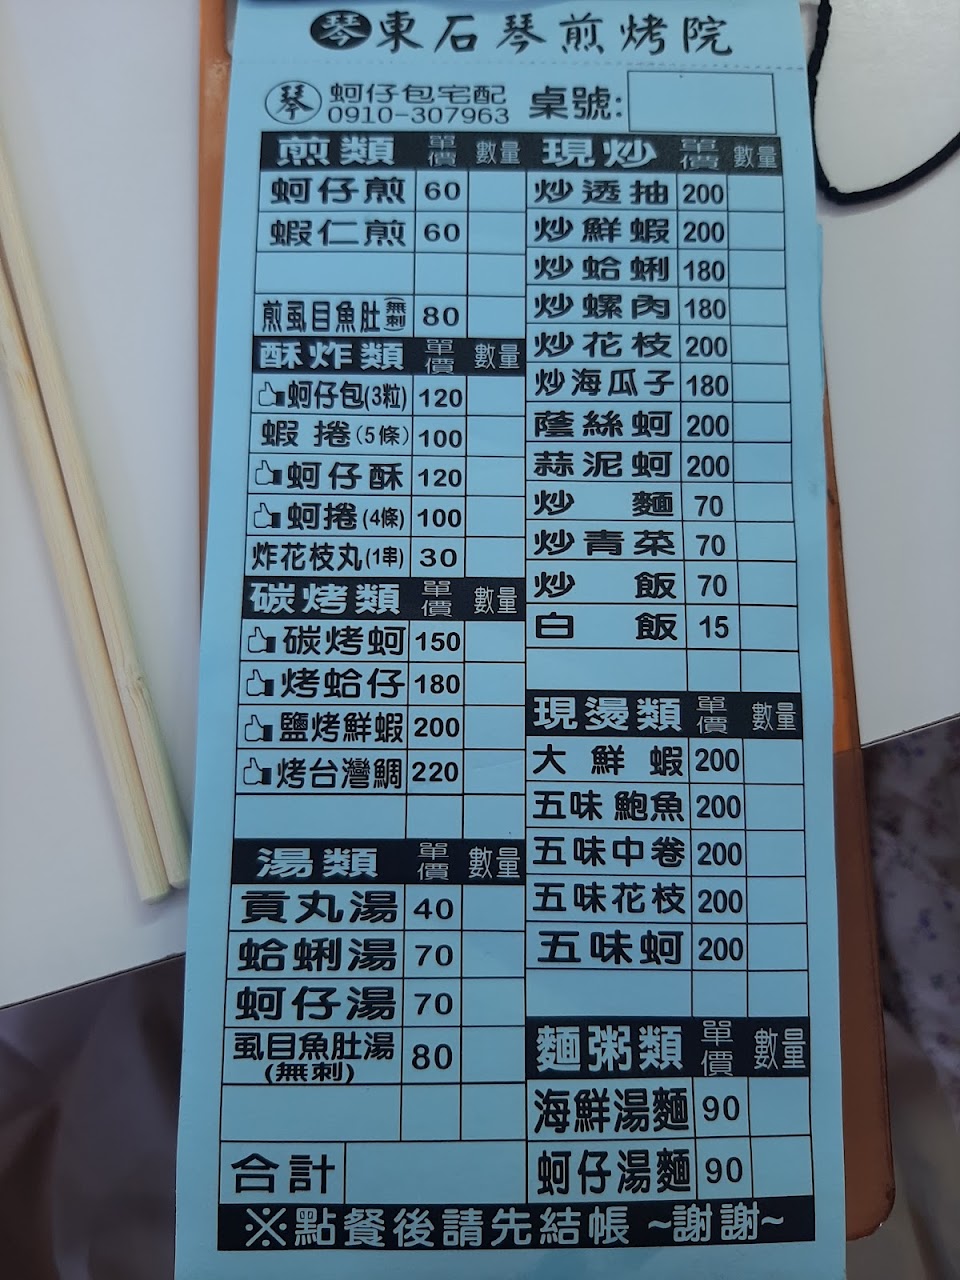 琴東石琴煎烤院
琴 蚵仔包宅配 0910-307963
桌號:
煎類 單價 數量
蚵仔煎 60
蝦仁煎 60
煎虱目魚肚(無刺) 80
酥炸類 單價 數量
蚵仔包(3粒) 120
蝦捲(5條) 100
蚵仔酥 120
蚵捲(4條) 100
炸花枝丸(1串) 30
碳烤類 單價 數量
碳烤蚵 150
烤蛤仔 180
鹽烤鮮蝦 200
烤台灣鯛 220
湯類 單價 數量
貢丸湯 40
蛤蜊湯 70
蚵仔湯 70
虱目魚肚湯(無刺) 80
合計
現炒 單價 數量
炒透抽 200
炒鮮蝦 200
炒蛤蜊 180
炒螺肉 180
炒花枝 200
炒海瓜子 180
蔭絲蚵 200
蒜泥蚵 200
炒麵 70
炒青菜 70
炒飯 70
白飯 15
現燙類 單價 數量
大鮮蝦 200
五味鮑魚 200
五味中卷 200
五味花枝 200
五味蚵 200
麵粥類 單價 數量
海鮮湯麵 90
蚵仔湯麵 90
※點餐後請先結帳 ~謝謝~